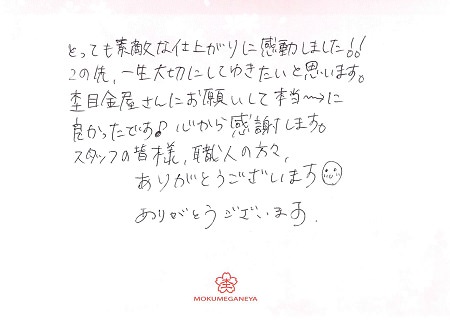 とっても素敵な仕上がりに感動しました!!
この先、一生大切にしてゆきたいと思います。
杢目金屋さんにお願いして本当〜に
良かったです♪心から感謝します。
スタッフの皆様、職人の方々、
ありがとうございます
ありがとうございます。
杢
MOKUMEGANEYA